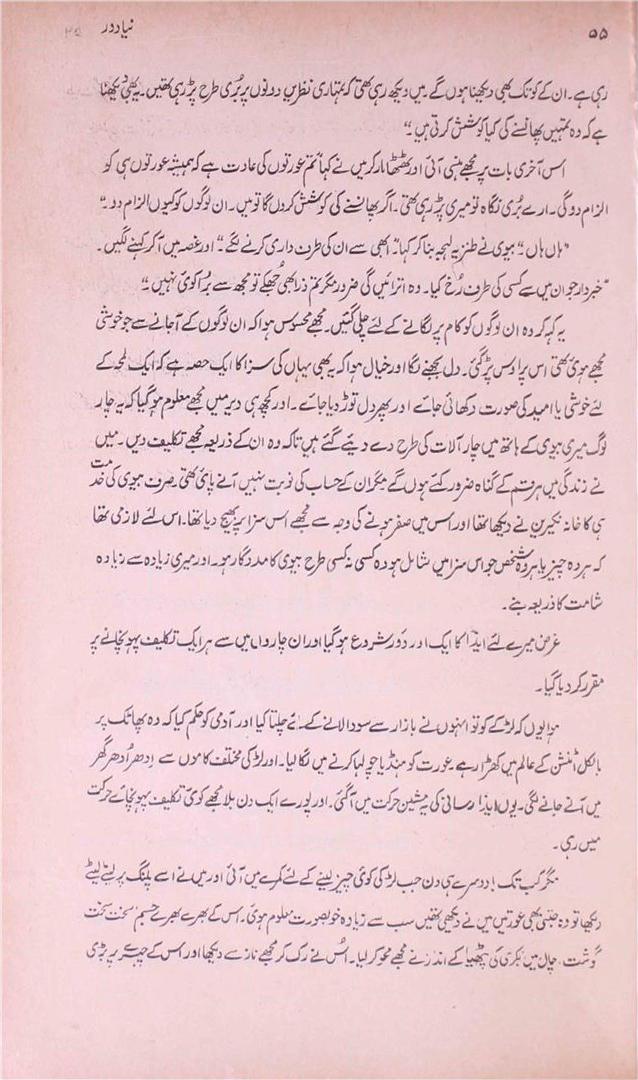 ۵۵
نیا دور
رہی ہے۔ ان کے کوتک بھی دیکھنا ہوں گے۔ میں دیکھ رہی تھی کہ تمہاری نظریں دونوں پر بُری طرح پڑ رہی تھیں۔ یہ بھی دیکھنا
ہے کہ وہ تمہیں پھانسنے کی کیا کوشش کرتی ہیں۔“
اس آخری بات پر مجھے ہنسی آئی اور ٹھٹھا مار کر میں نے کہا ”تم عورتوں کی عادت ہے کہ ہمیشہ عورتوں ہی کو
الزام دو گی۔ ارے بُری نگاہ تو میری پڑ رہی تھی۔ اگر پھانسنے کی کوشش کروں گا تو میں۔ ان لوگوں کو کیوں الزام دو۔“
”ہاں ہاں۔“ بیوی نے طنزیہ لہجہ بنا کر کہا ”ابھی سے ان کی طرف داری کرنے لگے۔“ اور غصہ میں آ کر کہنے لگیں۔
”خبردار جو ان میں سے کسی کی طرف رُخ کیا۔ وہ اترائیں گی ضرور مگر تم ذرا بھی جُھکے تو مجھ سے بُرا کوئی نہیں۔“
یہ کہہ کر وہ ان لوگوں کو کام پر لگانے کے لئے چلی گئیں۔ مجھے محسوس ہوا کہ ان لوگوں کے آجانے سے جو خوشی
مجھے ہوئی تھی اس پر اوس پڑ گئی۔ دل بجھنے لگا اور خیال ہوا کہ یہ بھی یہاں کی سزا کا ایک حصہ ہے کہ ایک لمحہ کے
لئے خوشی یا امید کی صورت دکھائی جائے اور پھر دل توڑ دیا جائے۔ اور کچھ ہی دیر میں مجھے معلوم ہو گیا کہ یہ چار
لوگ میری بیوی کے ہاتھ میں چار آلات کی طرح دے دیئے گئے ہیں تاکہ وہ ان کے ذریعہ مجھے تکلیف دیں۔ میں
نے زندگی میں ہر قسم کے گناہ ضرور کئے ہوں گے مگر ان کے حساب کی نوبت نہیں آنے پائی تھی۔ صرف بیوی کی خدمت
ہی کا خانہ نکیرین نے دیکھا تھا اور اس میں صفر ہونے کی وجہ سے مجھے اس سزا پہ بھیج دیا تھا۔ اس لئے لازمی تھا
کہ ہر وہ چیز یا ہر وہ شخص جو اس سزا میں شامل ہو وہ کسی نہ کسی طرح بیوی کا مددگار ہو۔ اور میری زیادہ سے زیادہ
شامت کا ذریعہ بنے۔
غرض میرے لئے ایذا کا ایک اور دَور شروع ہو گیا اور ان چاروں میں سے ہر ایک تکلیف پہونچانے پر
مقرر کر دیا گیا۔
ہوا یوں کہ لڑکے کو تو انہوں نے بازار سے سودا لانے کے لئے چلتا کیا اور آدمی کو حکم کیا کہ وہ پھاٹک پر
بالکل اٹنشن کے عالم میں کھڑا رہے عورت کو ہنڈیا چولہا کرنے میں لگا لیا۔ اور لڑکی مختلف کاموں سے اِدھر اُدھر گھر
میں آنے جانے لگی۔ یوں ایذا رسانی کی یہ مشین حرکت میں آگئی۔ اور پورے ایک دن بلا مجھے کوئی تکلیف پہونچائے حرکت
میں رہی۔
مگر کب تک! دوسرے ہی دن جب لڑکی کوئی چیز لینے کے لئے کمرے میں آئی اور میں نے اسے پلنگ پر لیٹے لیٹے
دیکھا تو وہ جتنی بھی عورتیں میں نے دیکھی تھیں سب سے زیادہ خوبصورت معلوم ہوئی۔ اس کے بھرے بھرے جسم سخت سخت
گوشت، چال میں بکری کی پٹھیا کے انداز نے مجھے محو کر لیا۔ اُس نے رک کر مجھے ناز سے دیکھا اور اس کے چہرے پر بڑی